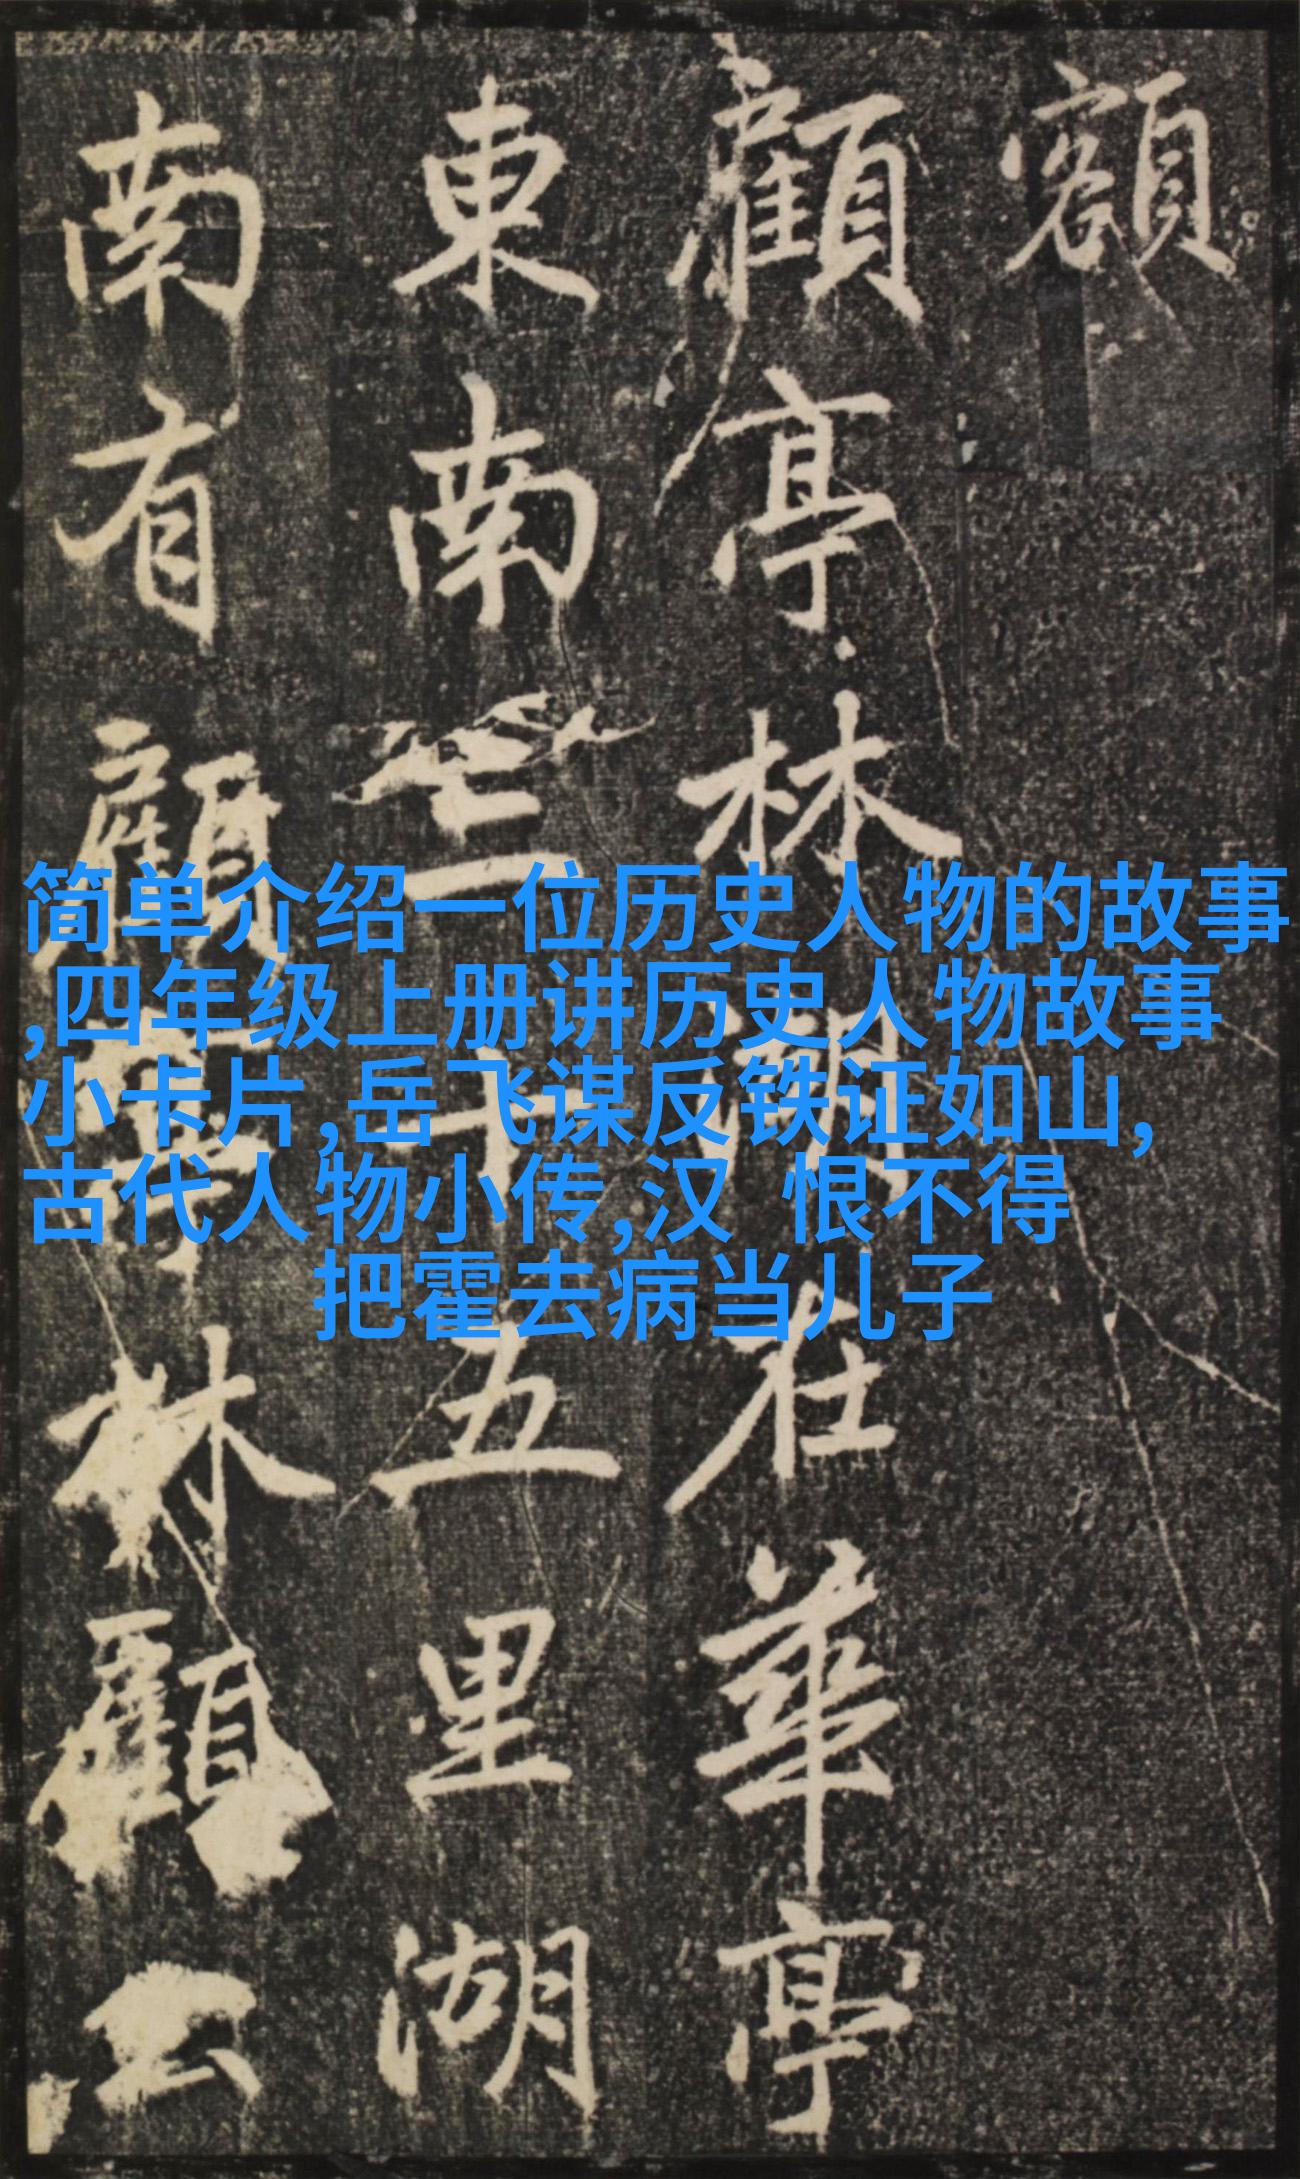 額
顧亭林湖在華亭
東南三十五里湖
南有顧亭林顧公
简单介绍一位历史人物的故事
,四年级上册讲历史人物故事
小卡片,岳飞谋反铁证如山,
古代人物小传,汉 恨不得
把霍去病当儿子